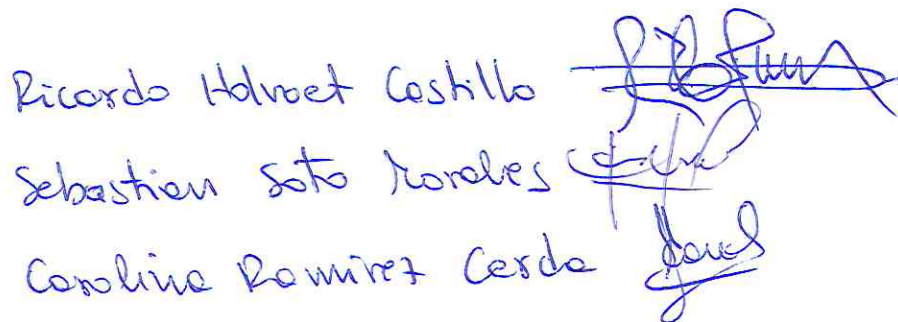 Ricardo Holvoet Castillo
Sebastian Soto Morales
Carolina Ramirez Cerda